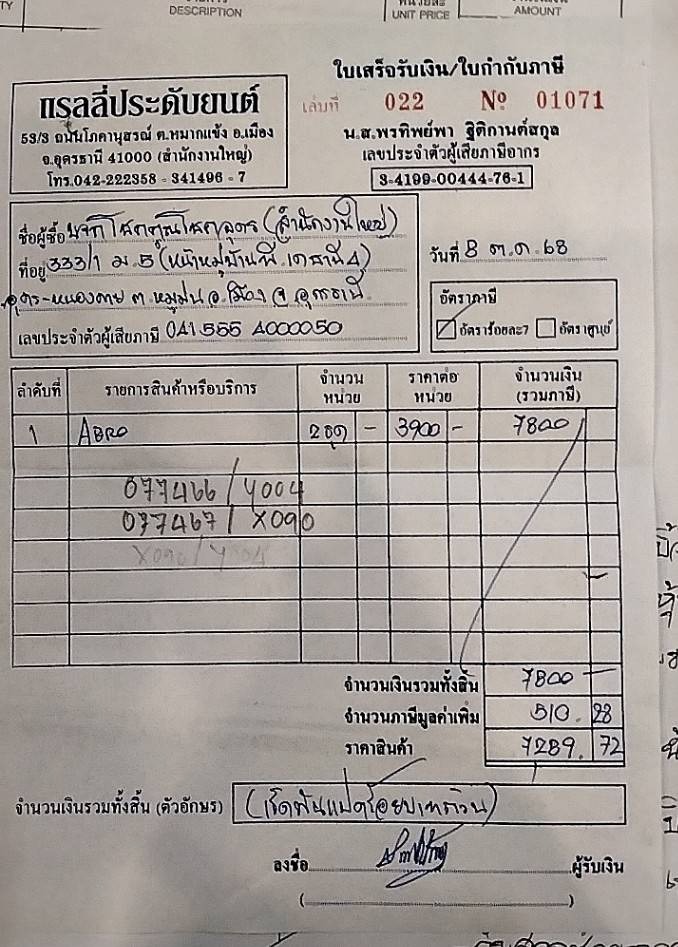 TY
DESCRIPTION
หน่วยละ
UNIT PRICE
AMOUNT
ใบเสร็จรับเงิน/ใบกำกับภาษี
แรลลี่ประดับยนต์
53/3 ถนนโภคานุสรณ์ ต.หมากแข้ง อ.เมือง
จ.อุดรธานี 41000 (สำนักงานใหญ่)
โทร.042-222358 - 341496 - 7
เล่มที่ 022 Nº 01071
น.ส.พรทิพย์พา ฐิติกานต์สกุล
เลขประจำตัวผู้เสียภาษีอากร
3-4199-00444-76-1
ชื่อผู้ซื้อ (สำนักงานใหญ่)
ที่อยู่ 333/1 ม.5 (หน้าหมู่บ้าน 4)
อุดร-หนองคาย ต.หมูม่น อ.เมือง จ.อุดรธานี
เลขประจำตัวผู้เสียภาษี 041 555 4000050
วันที่ 8 ต.ค. 68
อัตราภาษี
อัตราร้อยละ7 อัตราศูนย์
ลำดับที่ รายการสินค้าหรือบริการ จำนวนหน่วย ราคาต่อหน่วย จำนวนเงิน (รวมภาษี)
1 ABRO 2 ชุด - 3900 - 7800
077466 / Y004
077467 / X090
X090 / Y004
จำนวนเงินรวมทั้งสิ้น 7800 -
จำนวนภาษีมูลค่าเพิ่ม 510. 28
ราคาสินค้า 7289. 72
จำนวนเงินรวมทั้งสิ้น (ตัวอักษร) (เจ็ดพันแปดร้อยบาทถ้วน)
ลงชื่อ ผู้รับเงิน
( )